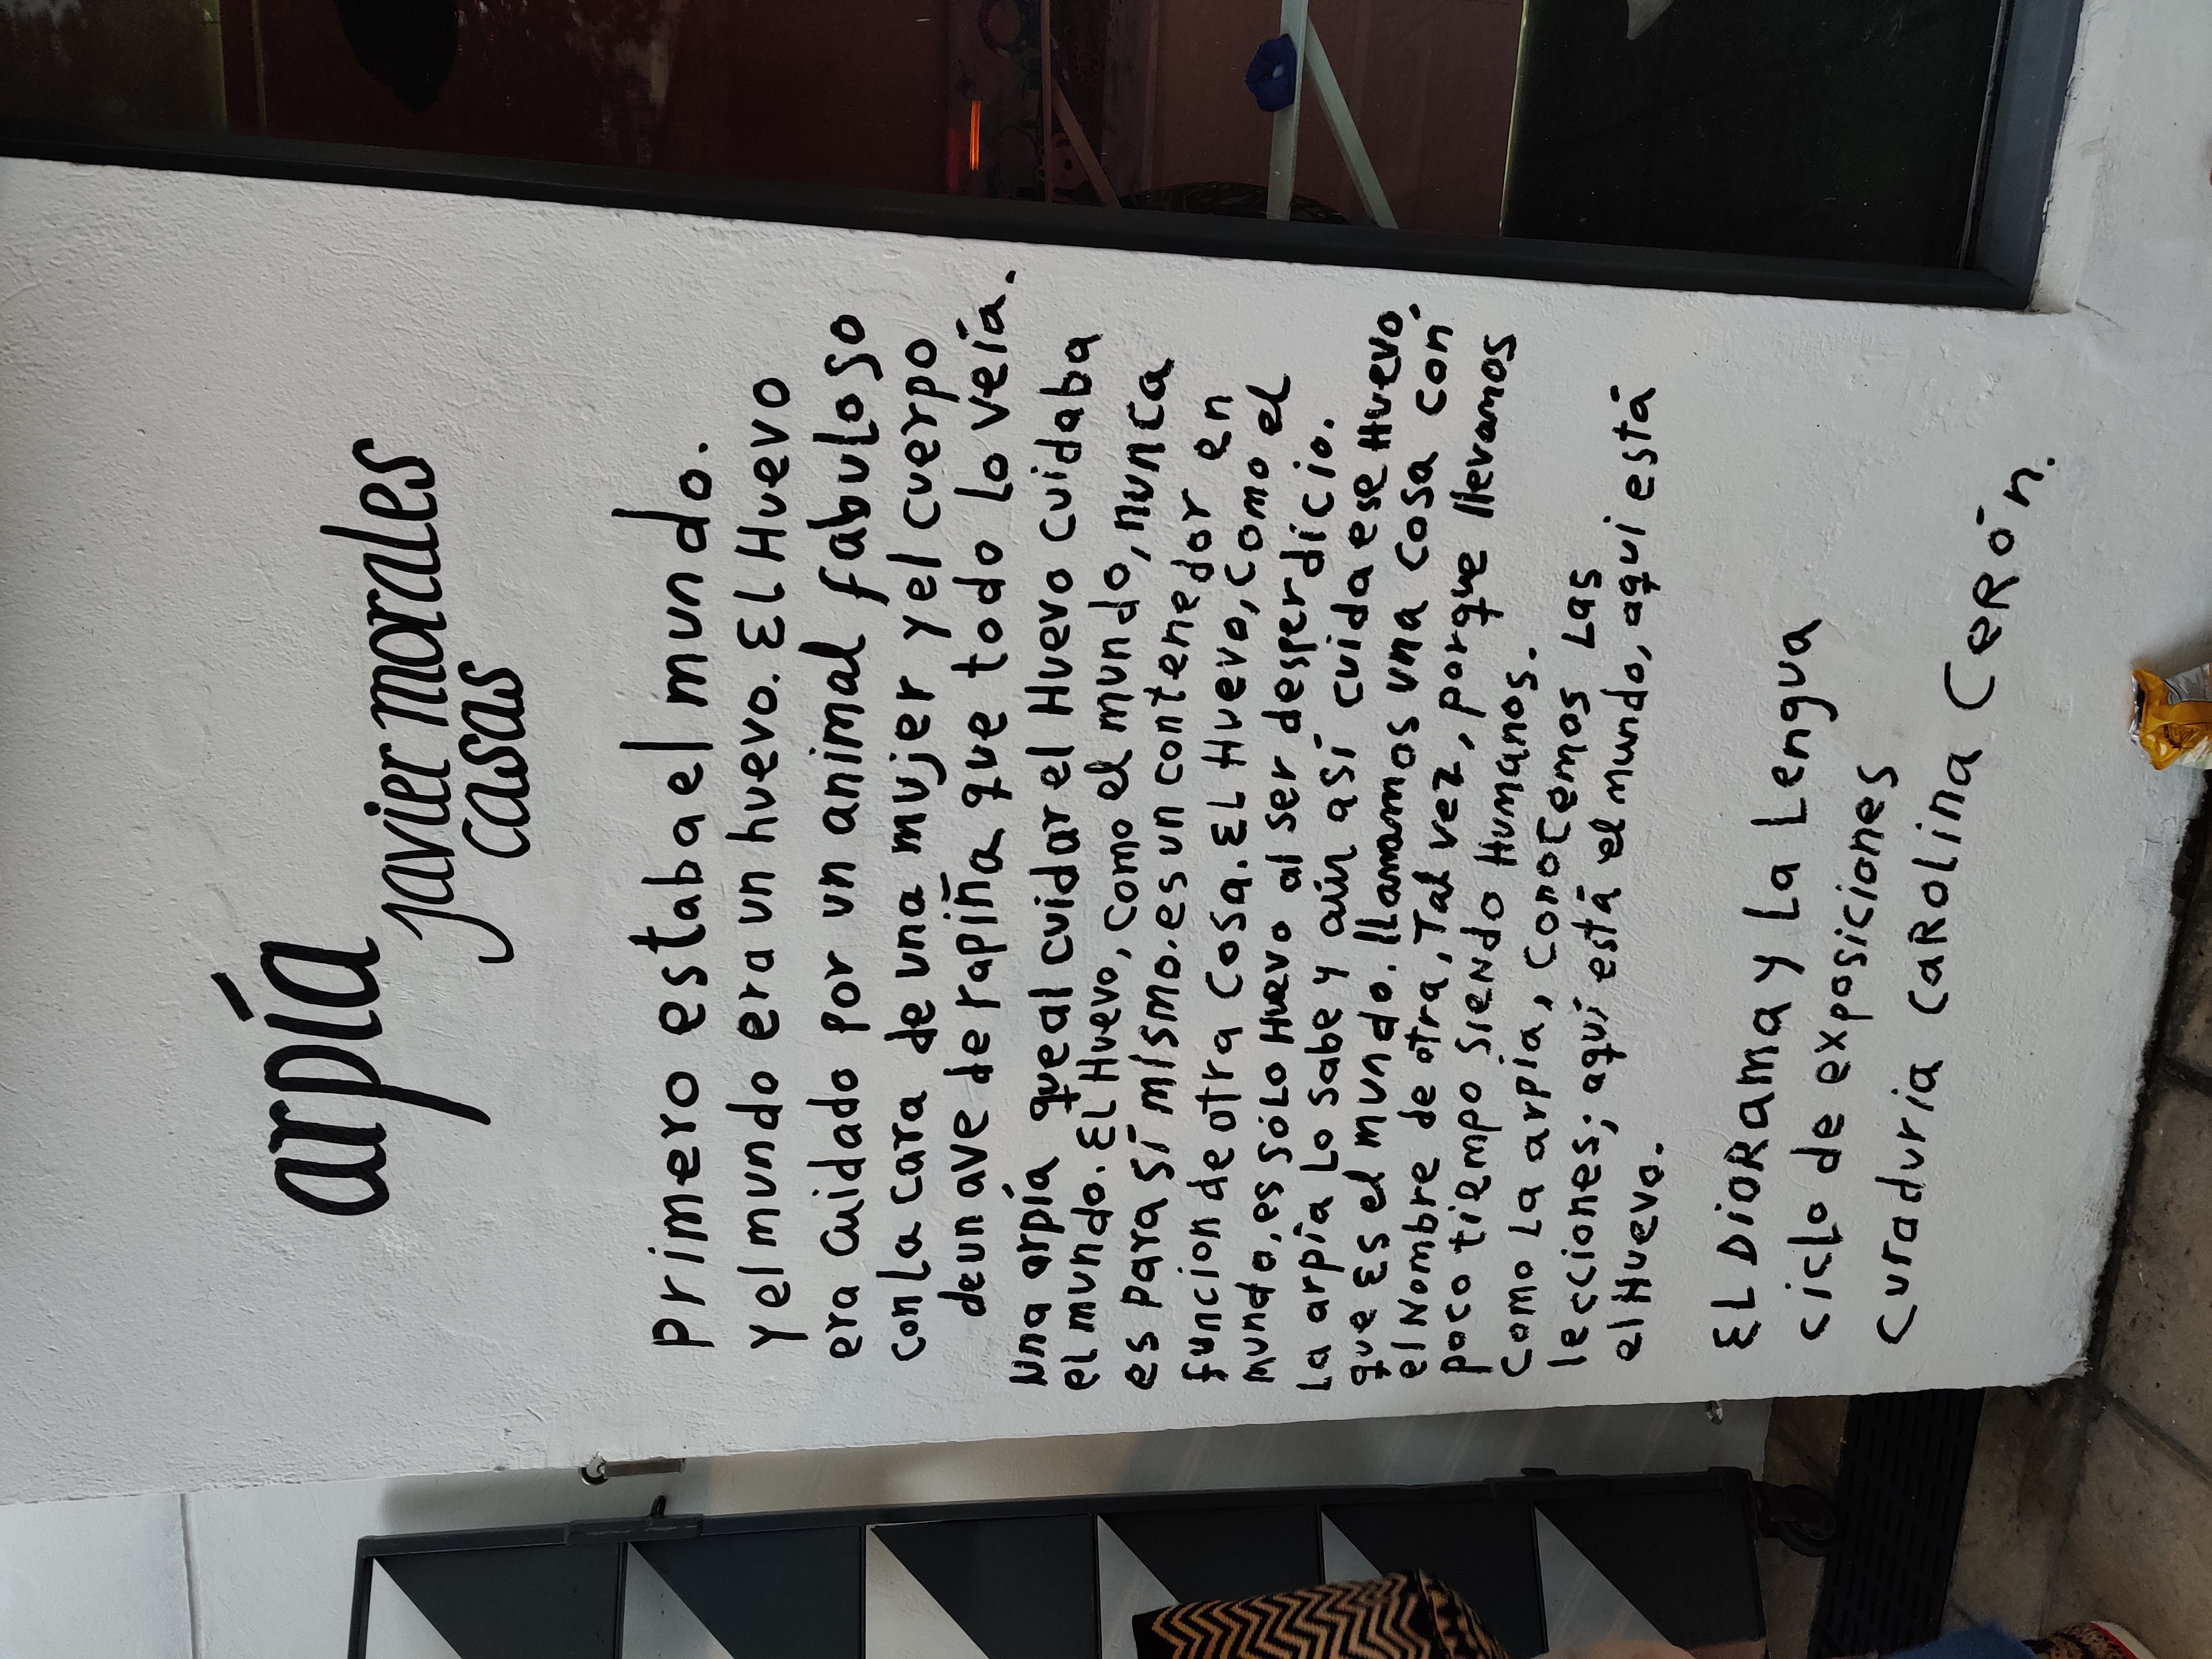 arpía
javier morales
casas
primero estaba el mundo.
y el mundo era un huevo. El Huevo
era cuidado por un animal fabuloso
con la cara de una mujer y el cuerpo
de un ave de rapiña que todo lo veía.
una arpía que al cuidar el Huevo cuidaba
el mundo. El Huevo, como el mundo, nunca
es para sí mismo. es un contenedor en
funcion de otra cosa. EL Huevo, como el
mundo, es sólo Huevo al ser desperdicio.
La arpía Lo sabe y aún así cuida ese Huevo
que Es el mundo. llamamos una cosa con
el Nombre de otra, Tal vez, porque llevamos
poco tiempo siendo Humanos.
Como La arpía, conocemos Las
lecciones; aquí está el mundo, aquí está
el Huevo.
EL DioRama y La Lengua
ciclo de exposiciones
Curaduría CaRolina CeRón.